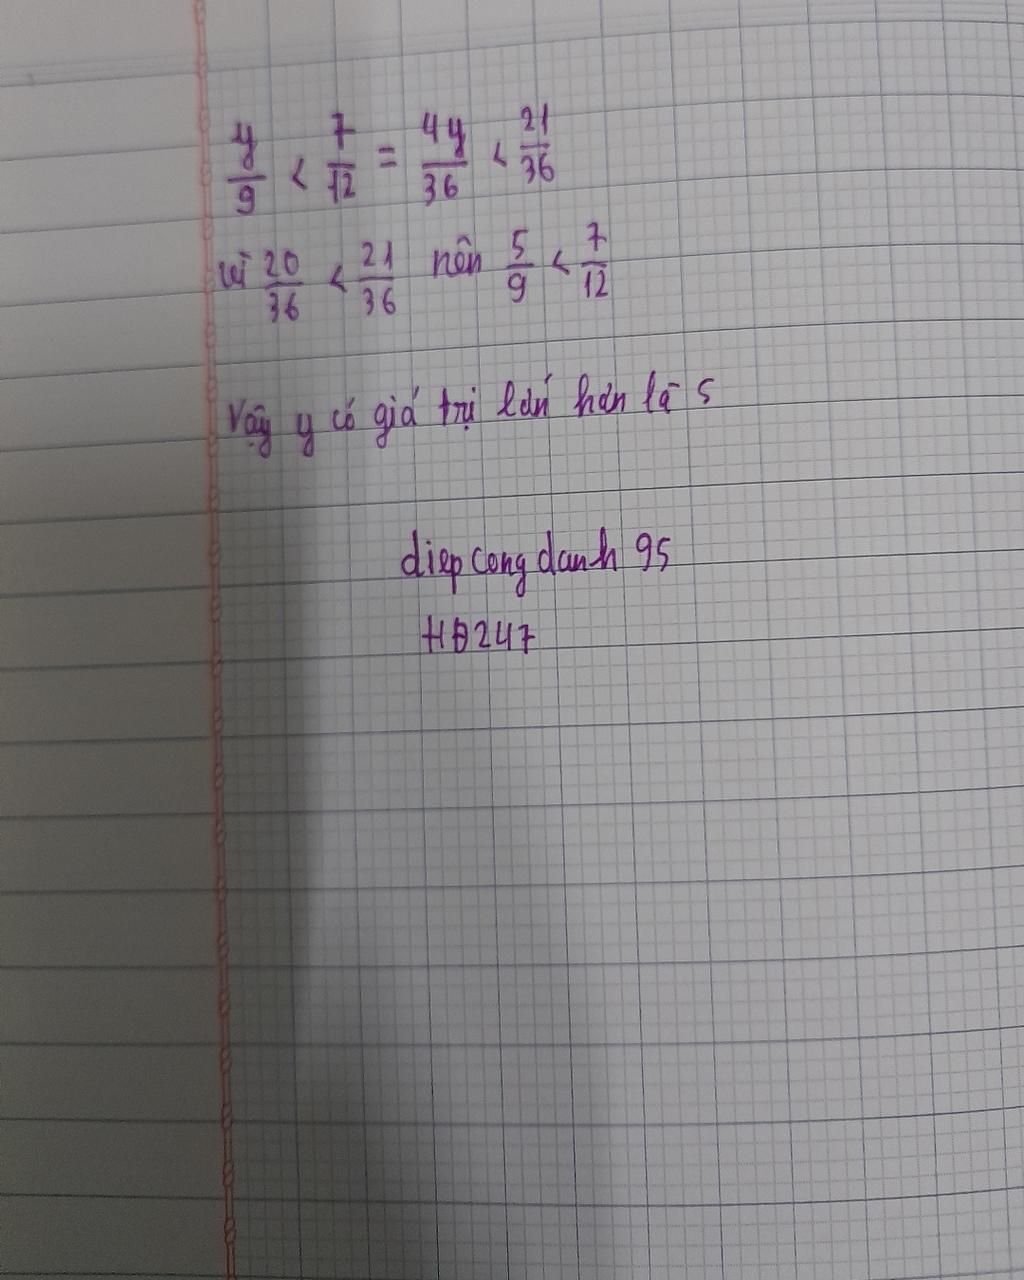 y/9 < 7/12 = 4y/36 < 21/36
vì 20/36 < 21/36 nên 5/9 < 7/12
Vậy y có giá trị lớn hơn là 5
diepcongdanh 95
HĐ247